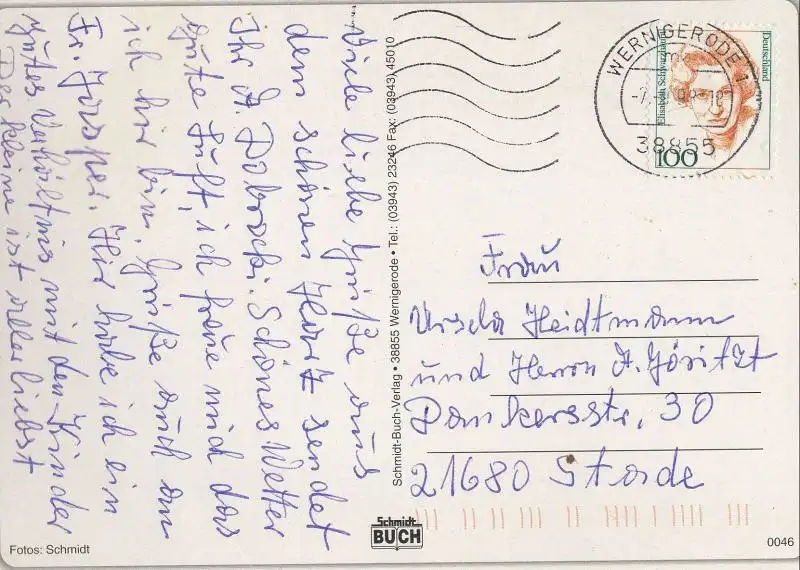 Viele liebe Grüße aus
dem schönen Harz sendet
Ihr A. Dobrocki. Schönes Wetter
gute Luft, ich freue mich das
ich hir bin. Grüße auch an
Fr. Hir habe ich ein
gutes Verhältnis mit den Kinder
Der kleine ist allerliebst
Schmidt-Buch-Verlag • 38855 Wernigerode • Tel.: (03943) 23246 Fax: (03943) 45010
WERNIGERODE 1
38855
Deutschland
Elisabeth Schwarzhaupt
100
Frau
Ursula Heidtmann
und Herrn A. Jöritzt
Dankersstr. 30
21680 Stade
Fotos: Schmidt
Schmidt
BUCH
0046